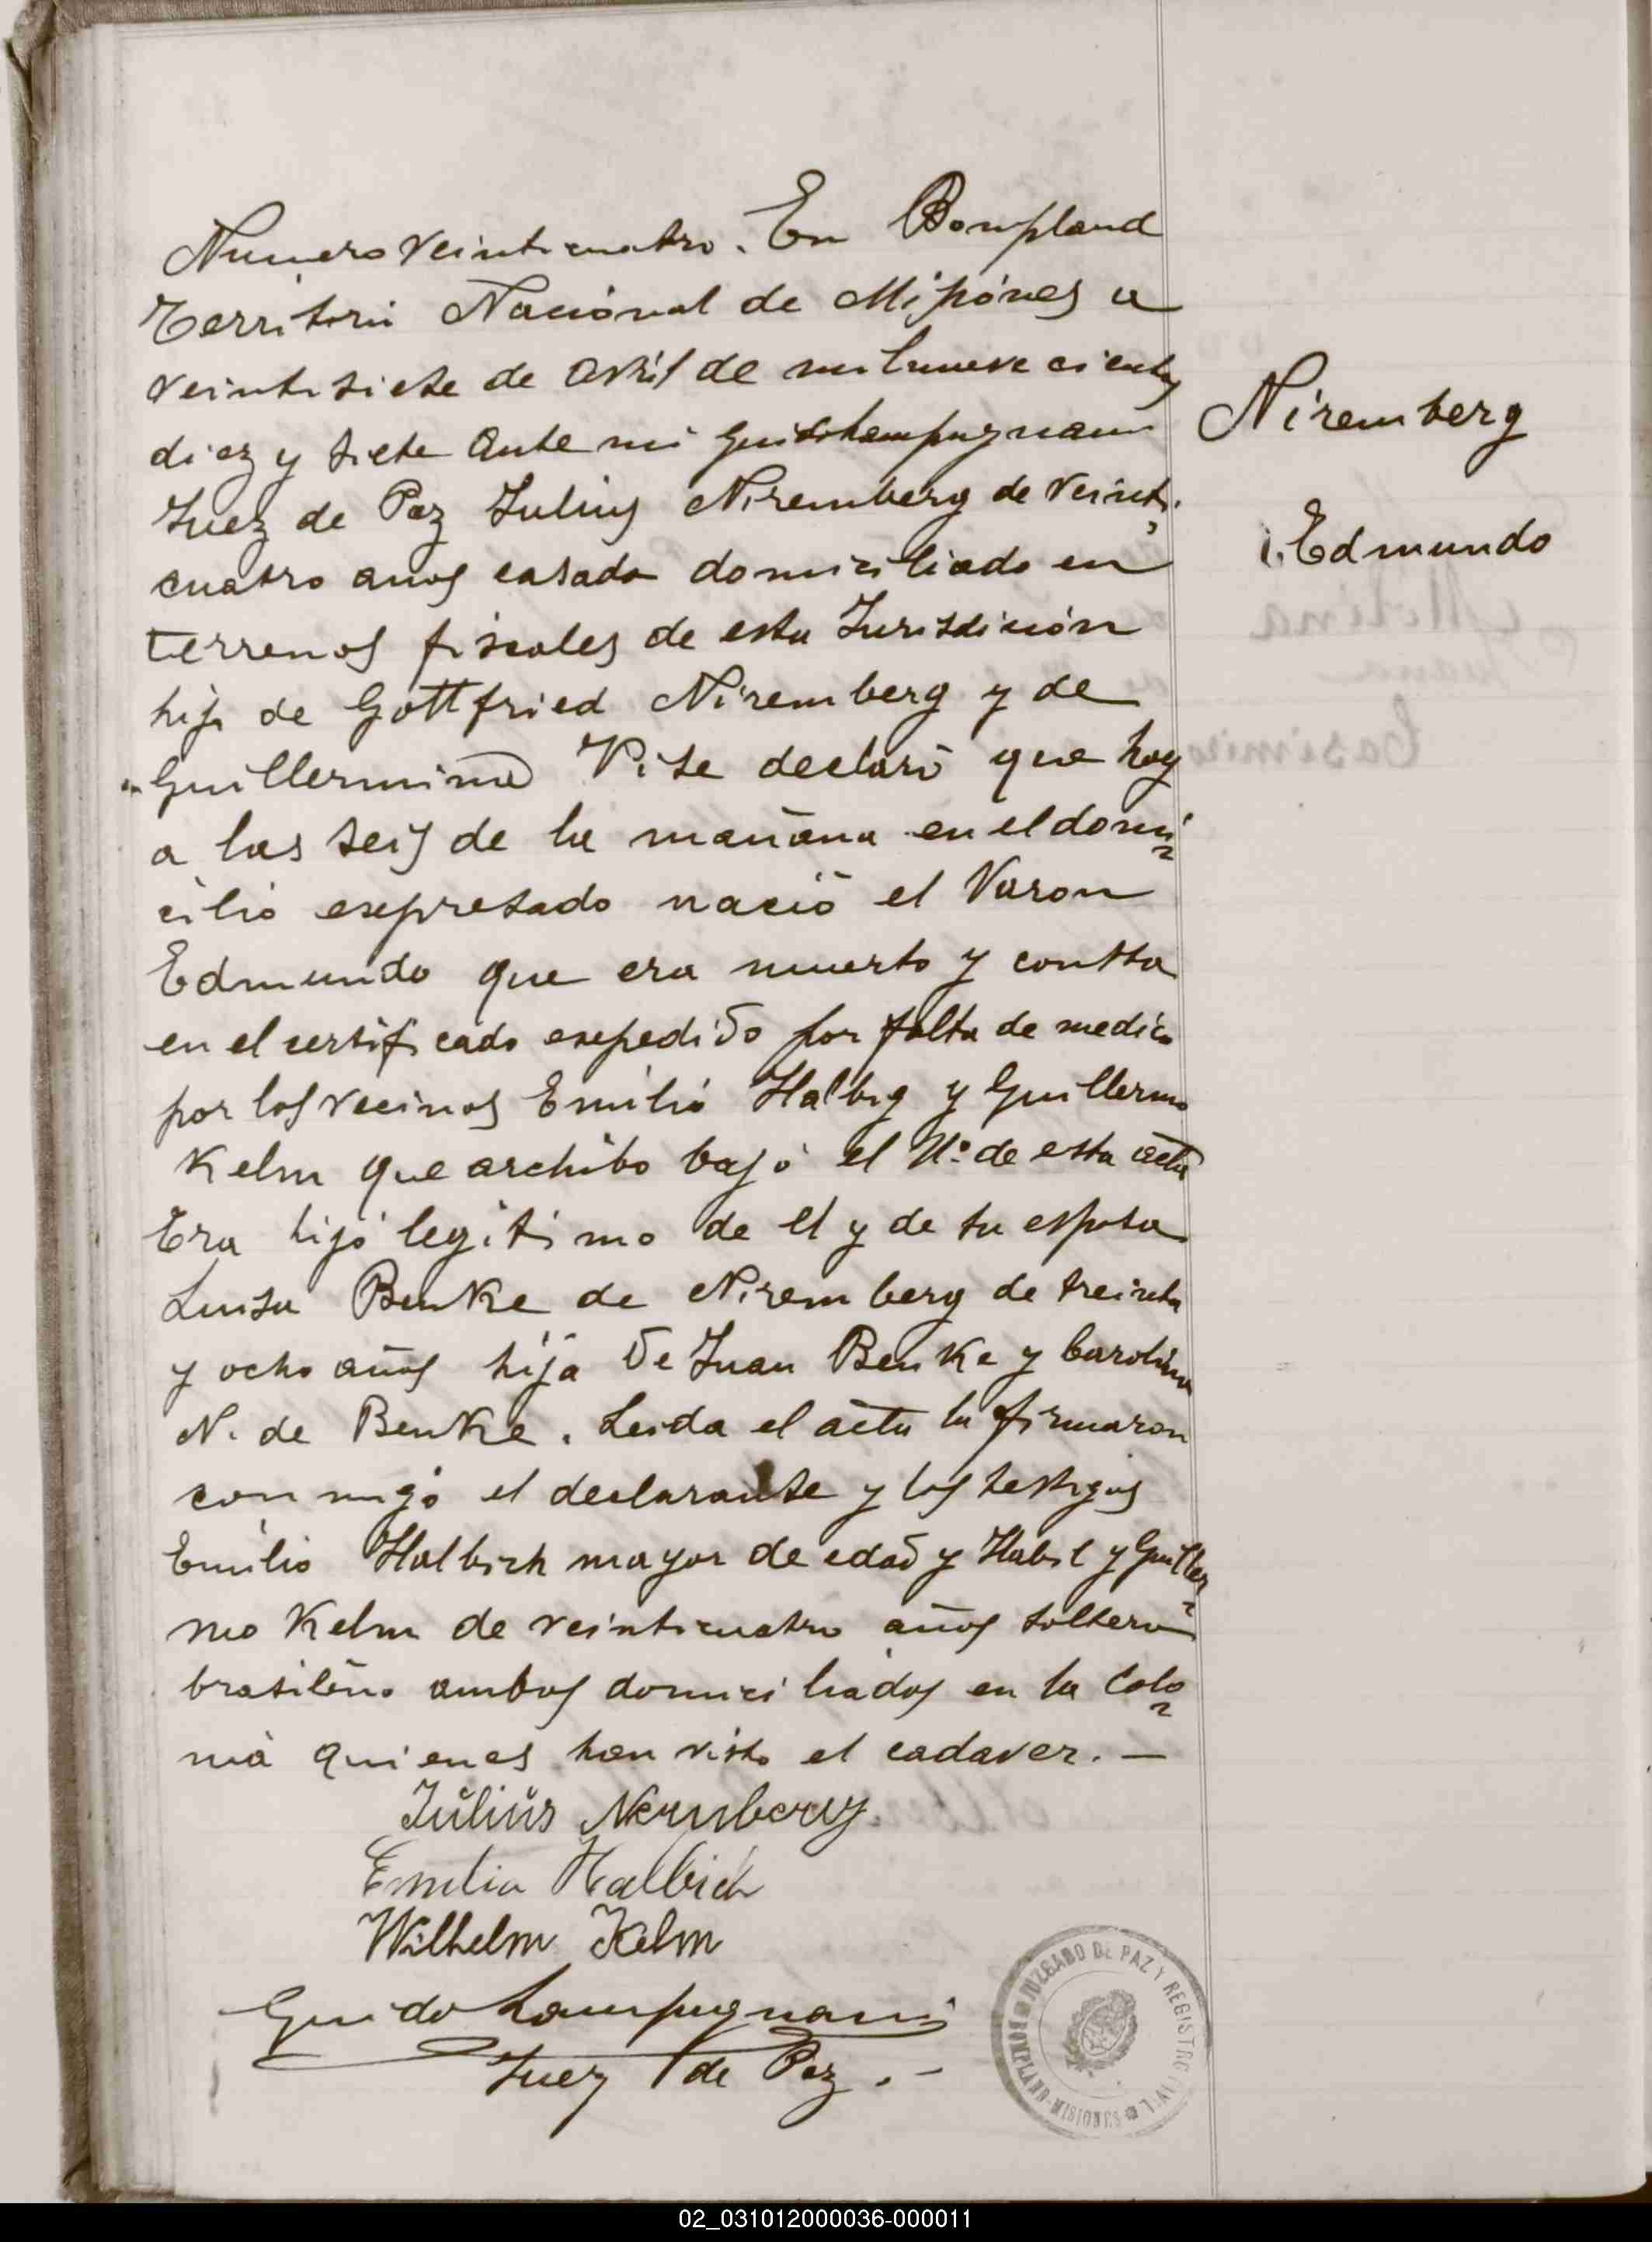 Numero Veinticuatro. En Bompland
Territorio Nacional de Misiónes a
veintisiete de Avril de mil nueve cientos
diez y siete Ante mi Guido Lampugnani
Juez de Paz Julius Niremberg de Veinti
cuatro años casado domiciliado en
terrenos fiscales de esta Jurisdición
hijo de Gottfried Niremberg y de
Guillermina declaró que hoy
a las seis de la mañana en el domi-
cilio expresado nació el Varon
Edmundo que era muerto y consta
en el certificado expedido por falta de medico
por los vecinos Emilio Halbig y Guillermo
Kelm que archibo bajo el Nº de esta acta
Era hijo legitimo de el y de su esposa
Luisa Benke de Niremberg de treinta
y ocho años hija de Juan Benke y Carolina
N. de Benke. Leida el acta la firmaron
conmigo el declarante y los testigos
Emilio Halbich mayor de edad y Habil y Guiller-
mo Kelm de veinticuatro años soltero
brasileño ambos domiciliados en la Colo-
nia quienes han visto el cadaver. —
Julius Nernberg
Emilio Halbich
Wilhelm Kelm
Guido Lampugnani
Juez de Paz. -
Niremberg
Edmundo
JUZGADO DE PAZ Y REGISTRO CIVIL
BOMPLAND-MISIONES
02_031012000036-000011